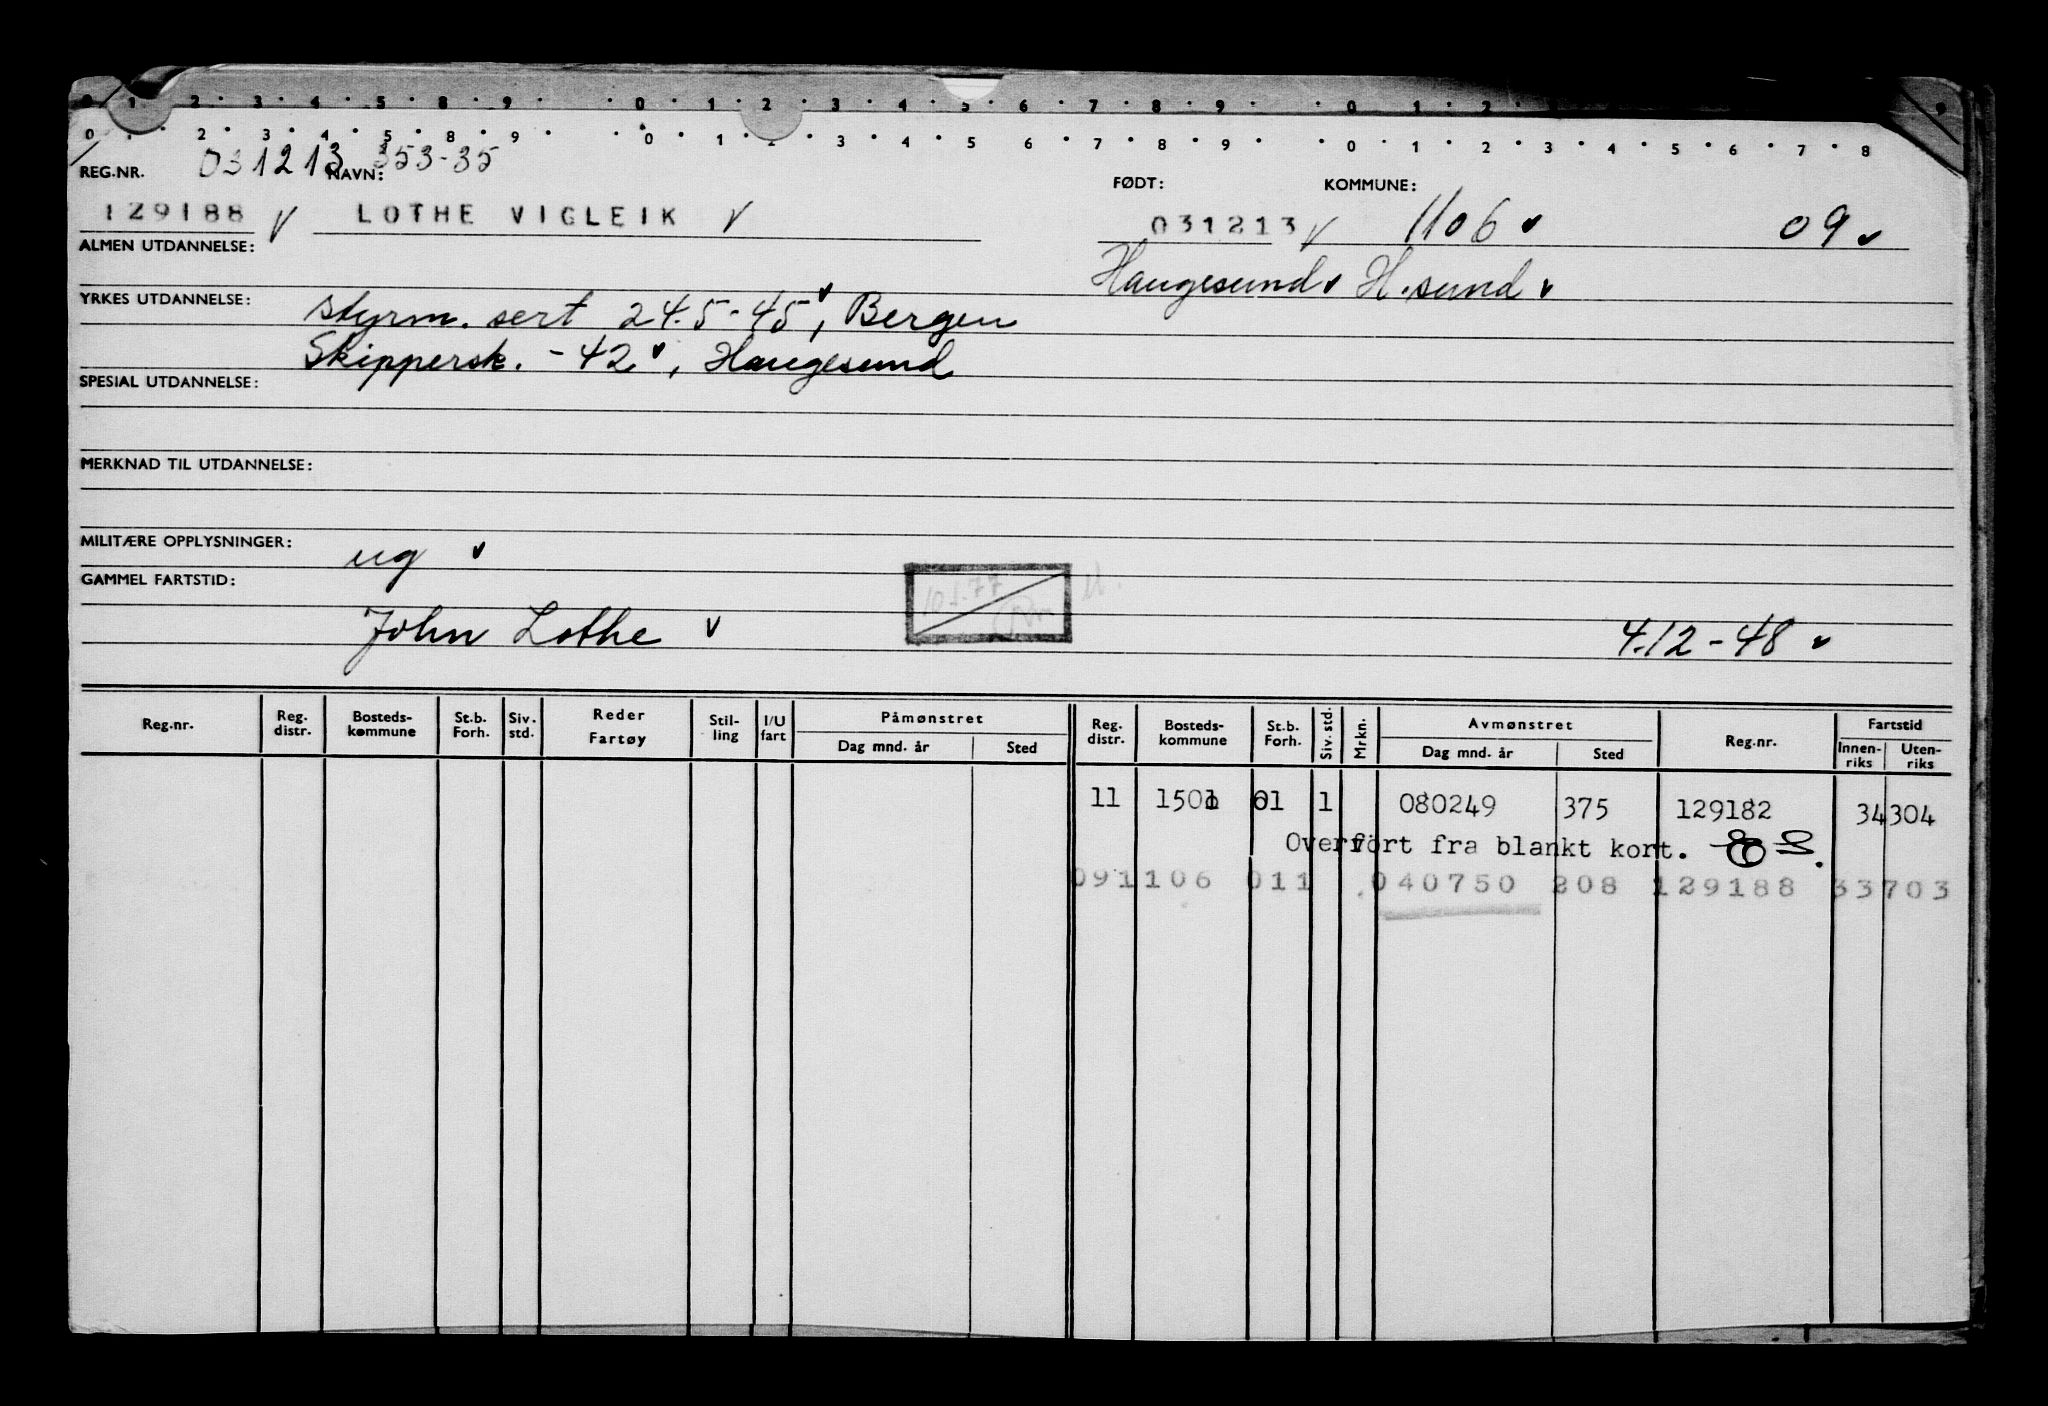 0 1 2 3 4 5 8 9 0 1 2 3 4 5 6 7 8 9 0 1 2 9
0 1 2 3 4 5 8 9 0 1 2 3 4 5 6 7 8 9 0 1 2 3 4 5 6 7 8
031213 353-35
REG.NR. NAVN: FØDT: KOMMUNE:
129188 V LOTHE VIGLEIK V 031213 V 1106 v 09 v
ALMEN UTDANNELSE:
Haugesund v H.sund v
YRKES UTDANNELSE: styrm. sert 24.5-45 v, Bergen
Skippersk. -42 v, Haugesund
SPESIAL UTDANNELSE:
MERKNAD TIL UTDANNELSE:
MILITÆRE OPPLYSNINGER: ug v
GAMMEL FARTSTID:
John Lothe v 4.12-48 v
Reg.nr. Reg. distr. Bosteds-kommune St.b. Forh. Siv. std. Reder Fartøy Stil-ling I/U fart Påmønstret Dag mnd. år Sted Reg. distr. Bosteds-kommune St.b. Forh. Siv. std. Mrkn. Avmønstret Dag mnd. år Sted Reg.nr. Fartstid Innen-riks Uten-riks
11 1501 01 1 080249 375 129182 34304
Overført fra blankt kort.
091106 011 040750 208 129188 33703